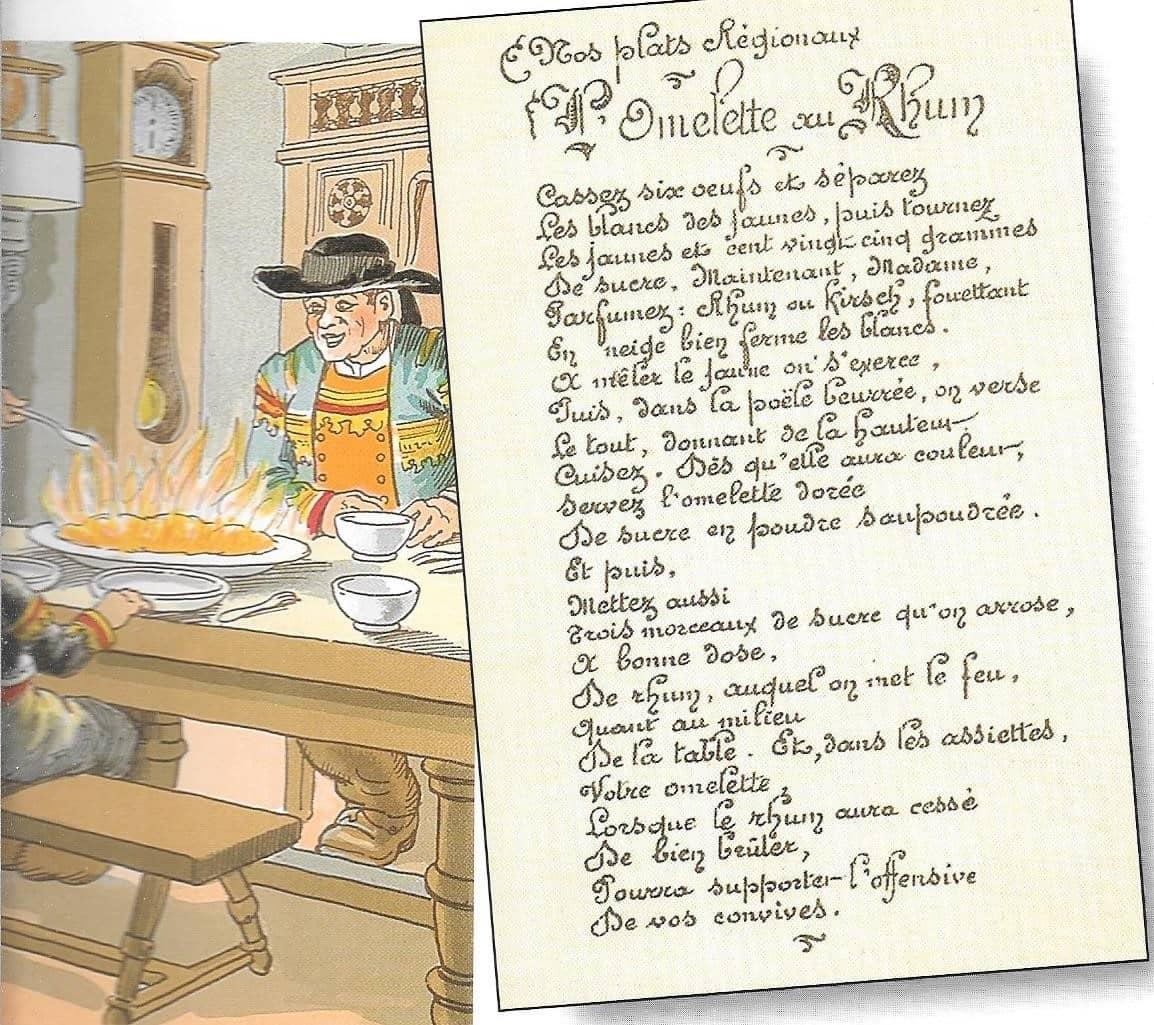 Nos plats Régionaux
L'Omelette au Rhum
Cassez six oeufs et séparez
Les blancs des jaunes, puis tournez
Les jaunes et cent vingt cinq grammes
De sucre. Maintenant, Madame,
Parfumez : Rhum ou Kirsch, fouettant
En neige bien ferme les blancs.
A mêler le jaune on s'exerce,
Puis, dans la poële beurrée, on verse
Le tout, donnant de la hauteur.
Cuisez. Dès qu'elle aura couleur,
Servez l'omelette dorée
De sucre en poudre saupoudrée.
Et puis,
Mettez aussi
Trois morceaux de sucre qu'on arrose,
A bonne dose,
De rhum, auquel on met le feu,
Quant au milieu
De la table. Et, dans les assiettes,
Votre omelette,
Lorsque le rhum aura cessé
De bien brûler,
Pourra supporter l'offensive
De vos convives.